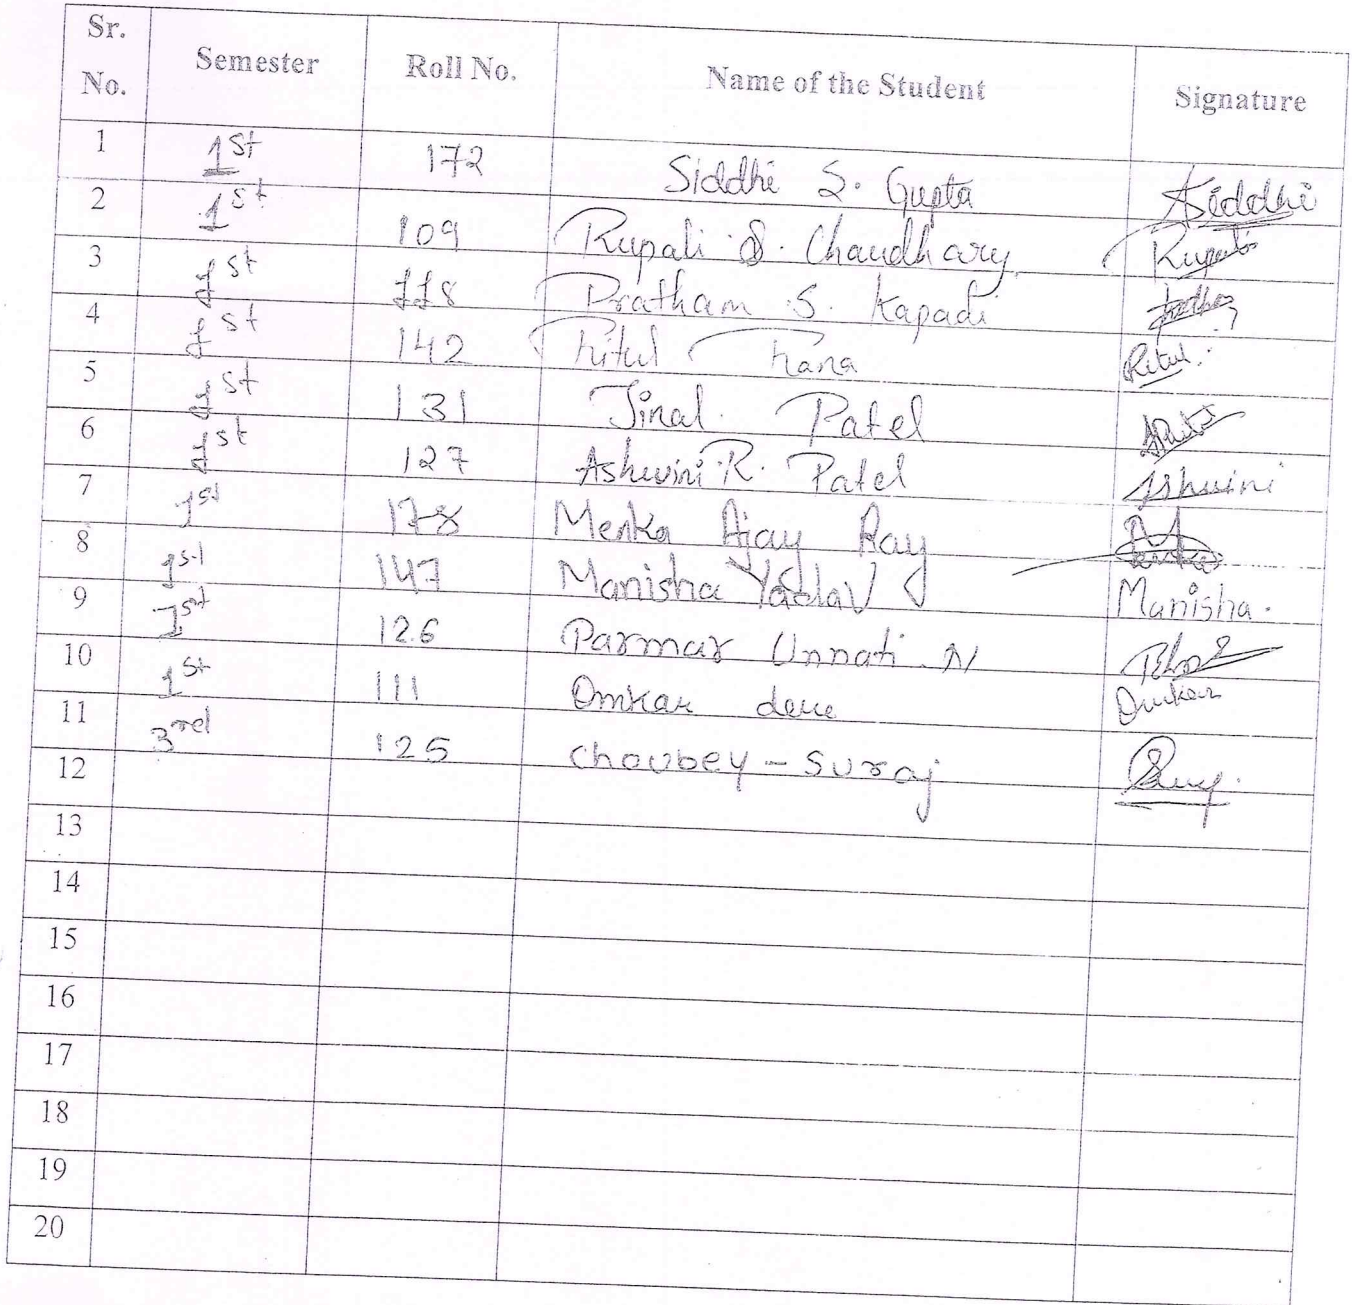 Sr. No. Semester Roll No. Name of the Student Signature
1 1st 172 Siddhi S. Gupta Siddhi
2 1st 109 Rupali S. Chaudhary Rupali
3 1st 118 Pratham S. Kapadi
4 1st 142 Ritul Rana Ritul.
5 1st 131 Jinal Patel
6 1st 127 Ashwini R. Patel Ashwini
7 1st 178 Menka Ajay Ray
8 1st 147 Manisha Yadav Manisha.
9 1st 126 Parmar Unnati N
10 1st 111 Omkar Omkar
11 3rd 125 Choubey - Suraj
12
13
14
15
16
17
18
19
20